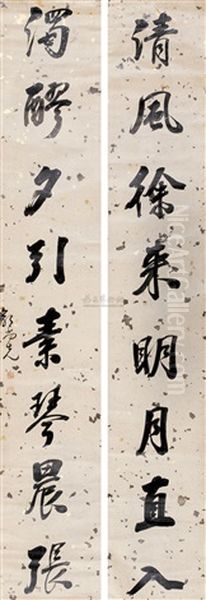 清風徐来明月直入
濁醪夕引素琴晨張